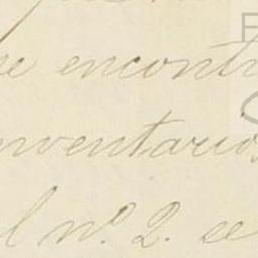 se encontr
nventarios
l nº 2. se